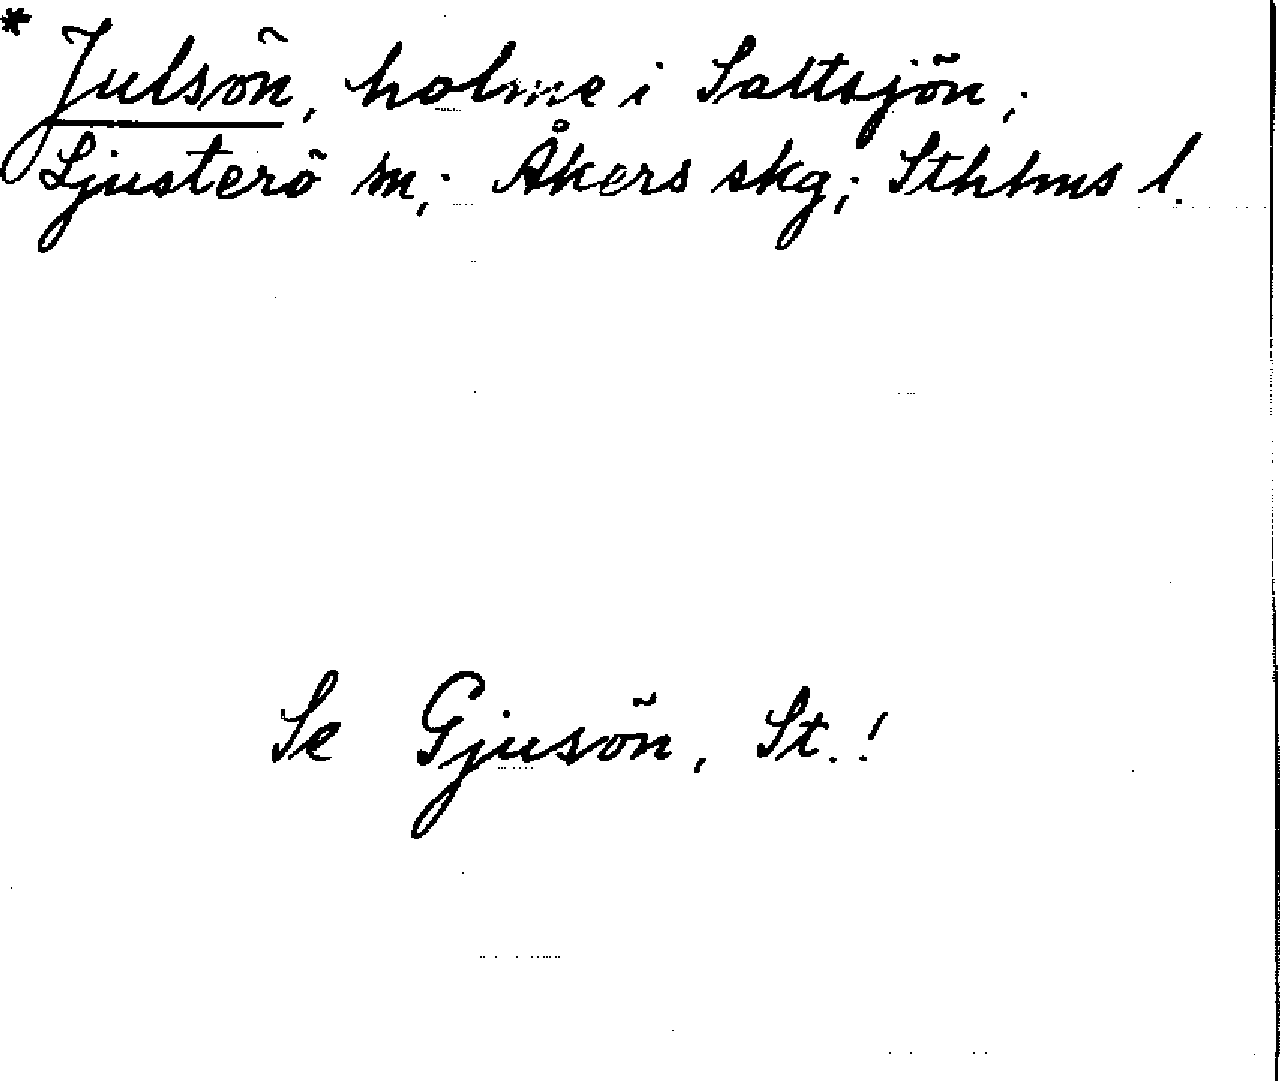 * Julsön, holme i Saltsjön;
Ljusterö sn; Åkers skg; Sthlms l.
Se Gjusön, St.!